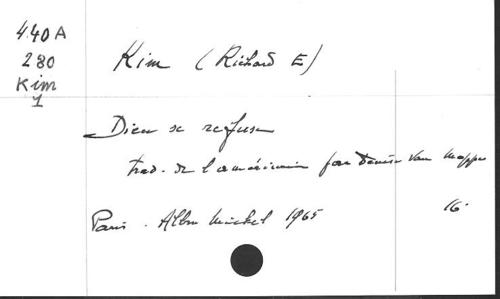 440A
280
Kim
1
Kim (Richard E)
Dieu se refuse
trad. de l'américain par Denise Van Moppès
Paris. Albin Michel 1965
16.